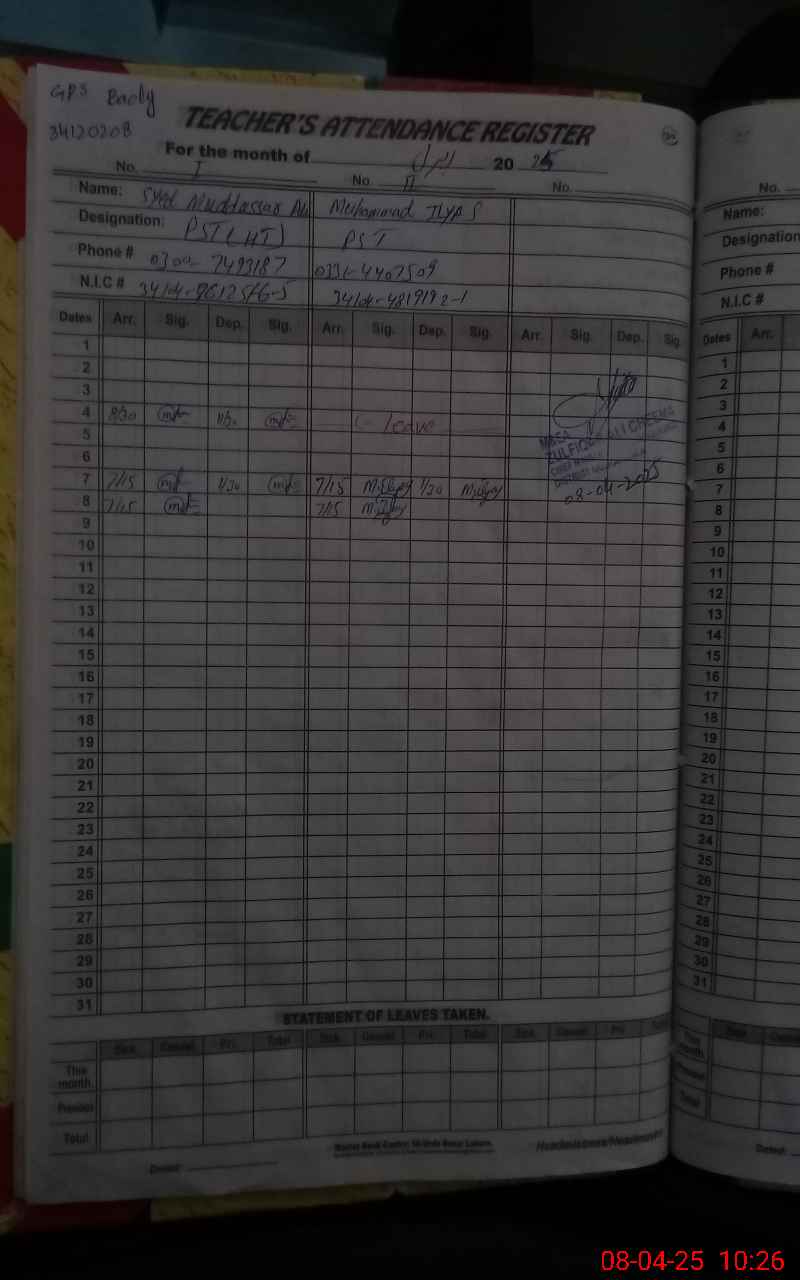 GPS Baoly
34120208
TEACHER'S ATTENDANCE REGISTER
For the month of اپریل 20 25
No. I No. II No.
Name: Syed Muddassar Ali Muhammad Ilyas
Designation: PST (HT) PST
Phone # 0300-7493187 0331-4407509
N.I.C # 34104-4819192-1
Dates Arr. Sig. Dep. Sig. Arr. Sig. Dep. Sig. Arr. Sig. Dep. Sig.
1
2
3
4 8/30 11/30 C-leave
5
6
7 7/15 1/30 7/15 M.Ilyas 1/30 M.Ilyas
8 7/15 7/15 M.Ilyas
08-04-2025
9
10
11
12
13
14
15
16
17
18
19
20
21
22
23
24
25
26
27
28
29
30
31
STATEMENT OF LEAVES TAKEN.
Sick Casual Pri. Total Sick Casual Pri. Total Sick Casual Pri. Total
This month.
Previous
Total
Dated:
Headmistress/Headmaster
No.
Name:
Designation
Phone #
N.I.C #
Dates Arr.
1
2
3
4
5
6
7
8
9
10
11
12
13
14
15
16
17
18
19
20
21
22
23
24
25
26
27
28
29
30
31
This month.
Previous
Total
Dated:
08-04-25 10:26